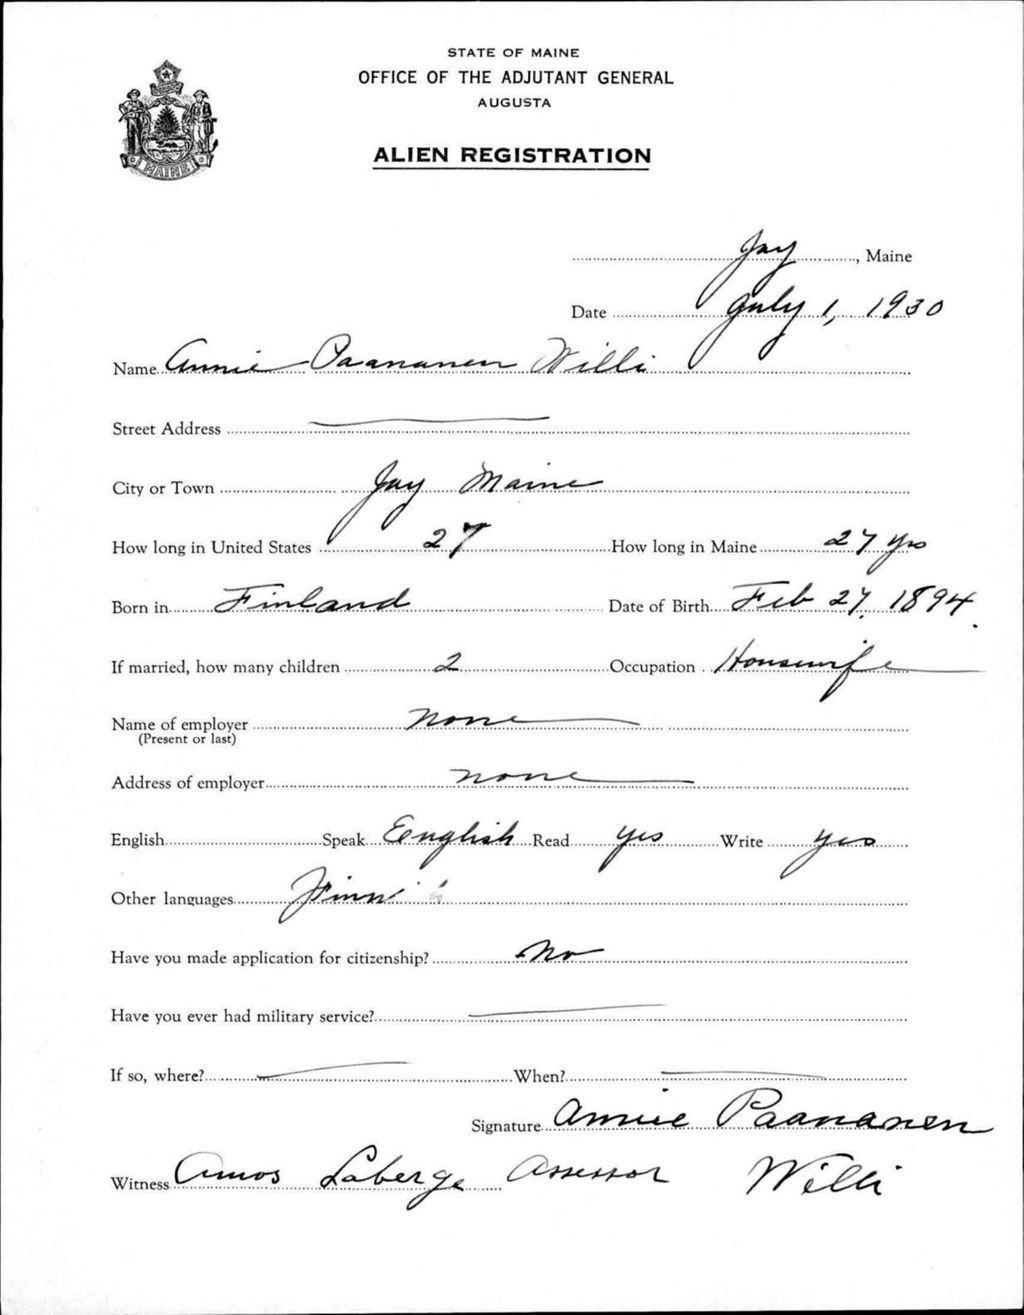 STATE OF MAINE
OFFICE OF THE ADJUTANT GENERAL
AUGUSTA
ALIEN REGISTRATION
MAINE
Jay, Maine
Date July 1, 1930
Name Annie Paananen Willi
Street Address
City or Town Jay Maine
How long in United States 27 How long in Maine 27 yrs
Born in Finland Date of Birth Feb 27, 1894.
If married, how many children 2 Occupation Housewife
Name of employer none
(Present or last)
Address of employer none
English Speak Eenglish Read yes Write yes
Other languages Finn h
Have you made application for citizenship? No
Have you ever had military service?
If so, where? When?
Signature Annie Paananen
Witness Amos Laberge Assessor Willi